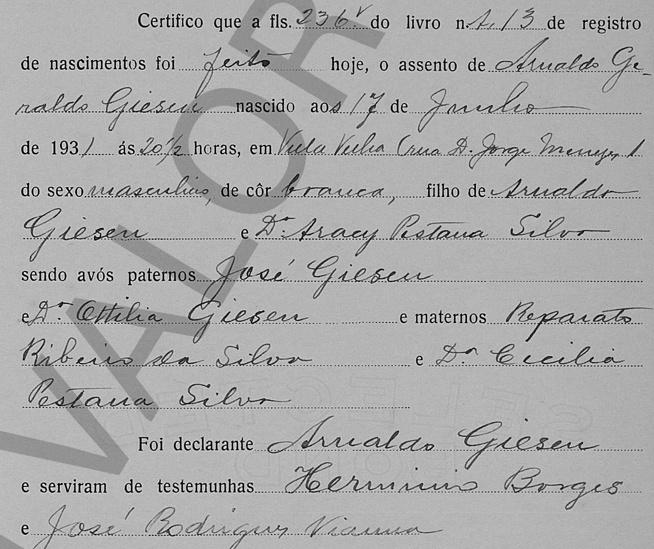 Certifico que a fls. 236v do livro n. A. 13 de registro
de nascimentos foi feito hoje, o assento de Arnaldo Ge-
raldo Giesen nascido aos 17 de Junho
de 1931 ás 20½ horas, em Villa Velha (rua D. Jorge Menezes
do sexo masculino, de côr branca, filho de Arnaldo
Giesen e Da. Aracy Pestana Silva
sendo avós paternos José Giesen
e Da. Ottilia Giesen e maternos Reparato
Ribeiro da Silva e Da. Cecilia
Pestana Silva
Foi declarante Arnaldo Giesen
e serviram de testemunhas Herminio Borges
e José Rodrigues Vianna
VALOR